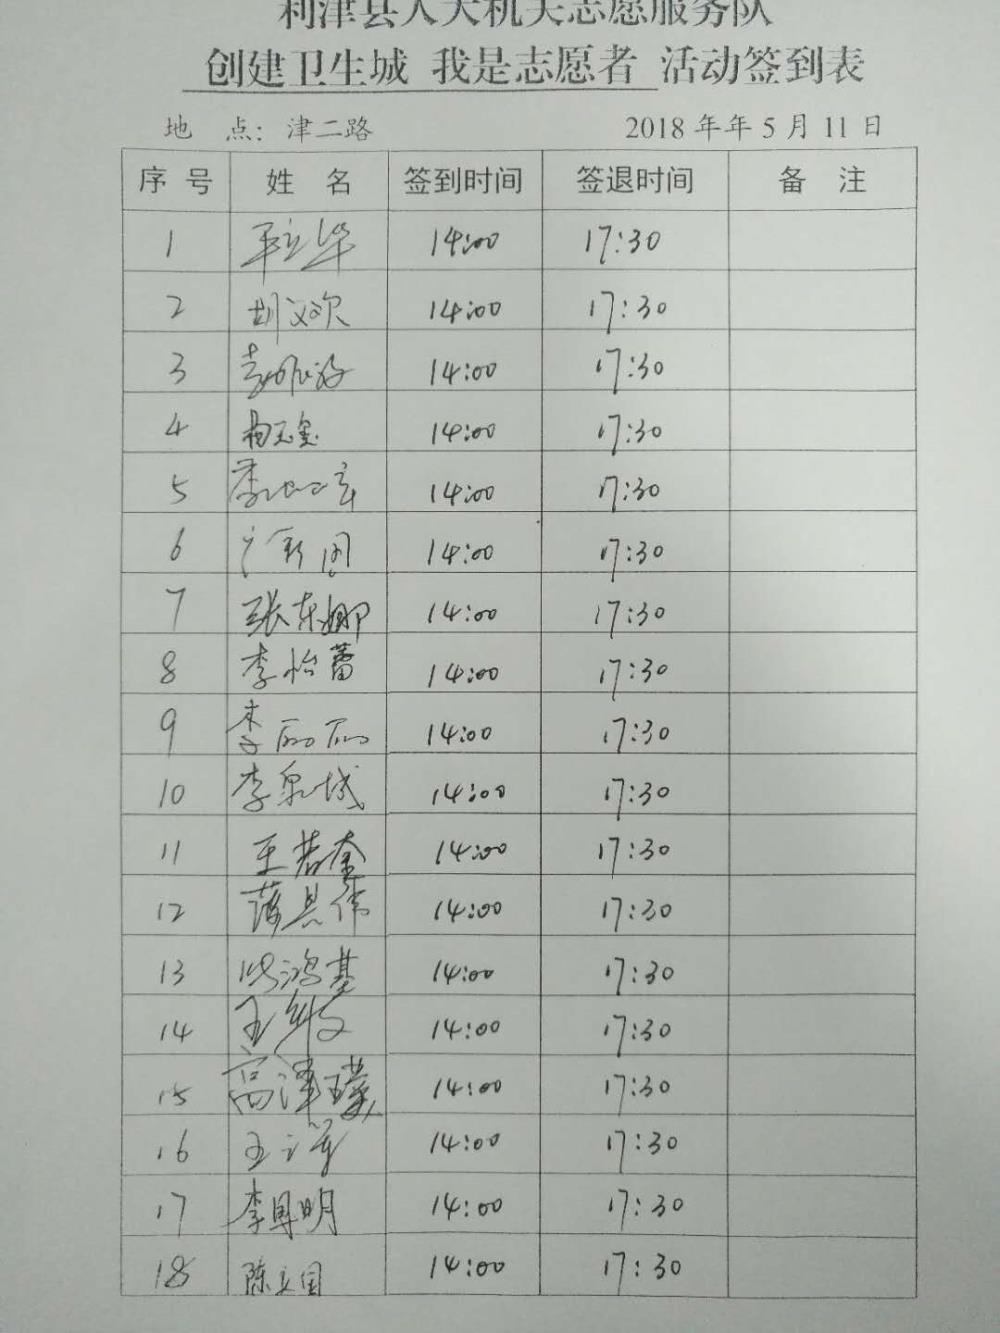 利津县人大机关志愿服务队
创建卫生城 我是志愿者 活动签到表
地 点：津二路 2018年年5月11日
序号 姓 名 签到时间 签退时间 备 注
1 14:00 17:30
2 胡文欢 14:00 17:30
3 14:00 17:30
4 杨玉玺 14:00 17:30
5 14:00 17:30
6 14:00 17:30
7 张东娜 14:00 17:30
8 李怡蕾 14:00 17:30
9 李丽丽 14:00 17:30
10 李泉城 14:00 17:30
11 王若奎 14:00 17:30
12 14:00 17:30
13 14:00 17:30
14 14:00 17:30
15 高泽璞 14:00 17:30
16 14:00 17:30
17 李国明 14:00 17:30
18 陈立国 14:00 17:30